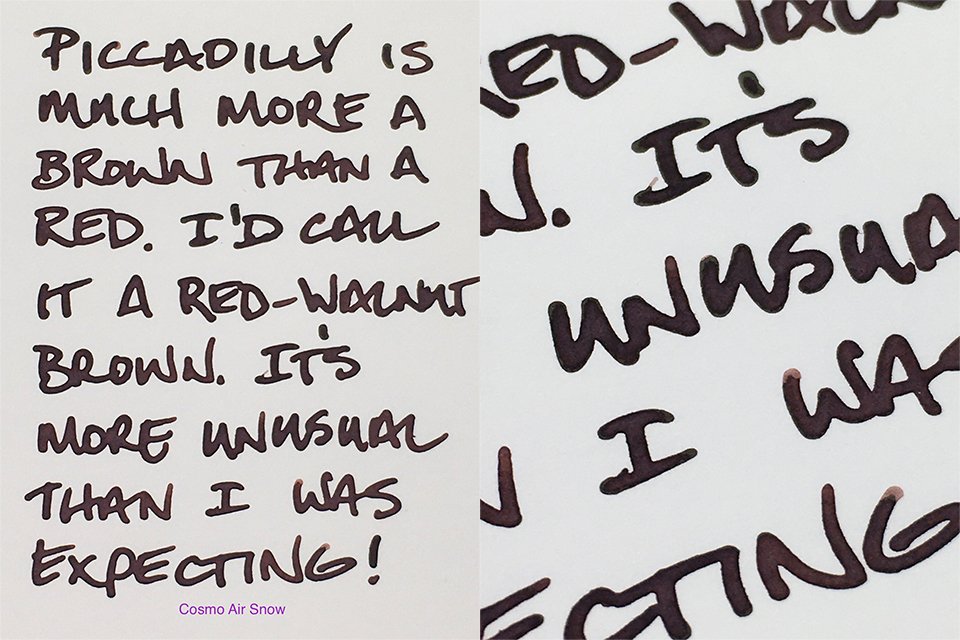 PICCADILLY IS
MUCH MORE A
BROWN THAN A
RED. I'D CALL
IT A RED-WALNUT
BROWN. IT'S
MORE UNUSUAL
THAN I WAS
EXPECTING!
Cosmo Air Snow
RED-WALN
N. IT'S
UNUSUA
N I WA
ECTING